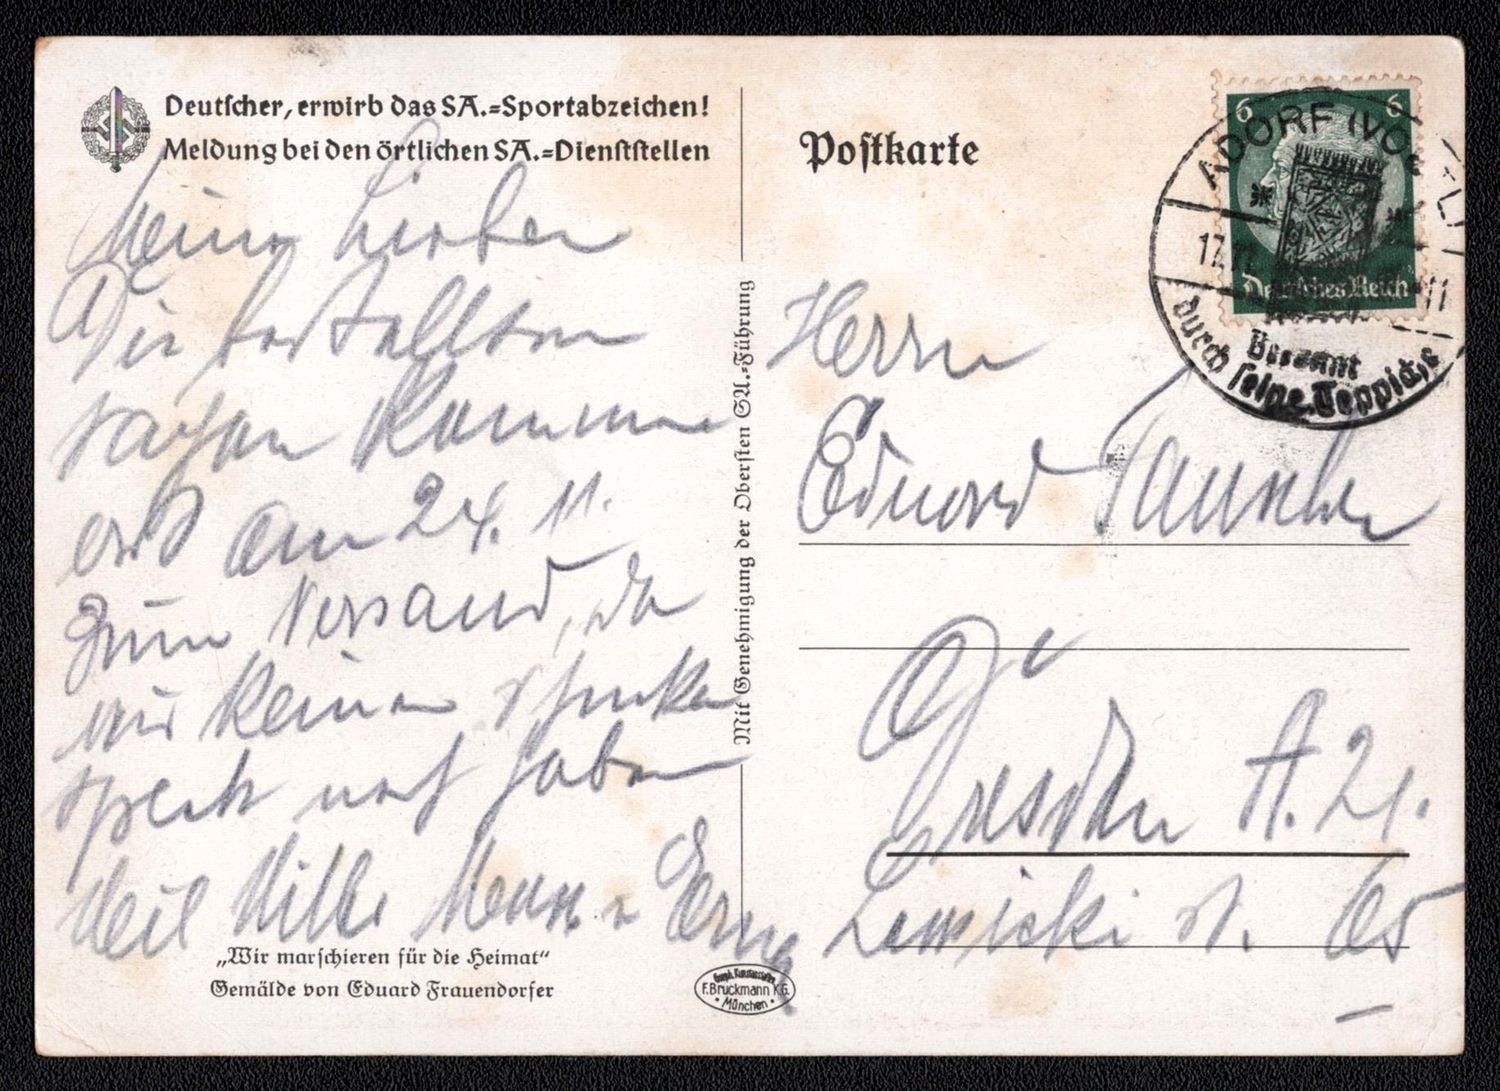 Deutscher, erwirb das SA.=Sportabzeichen!
Meldung bei den örtlichen SA.=Dienststellen
Meine Lieben
Die bestellten
sachen kommen
erst am 24. 11.
zum Versand, da
wir keinen schinken
speck mehr haben
Heil Willi Mann &
Postkarte
6 6
Deutsches Reich
ADORF (VOGTL)
17. 11
11
durch seine Teppiche
Mit Genehmigung der Obersten SA.=Führung
Herrn
Eduard
Dresden A. 21.
Lewicki st. 65
„Wir marschieren für die Heimat“
Gemälde von Eduard Frauendorfer
Graph. Kunstanstalten
F. Bruckmann K.G.
München